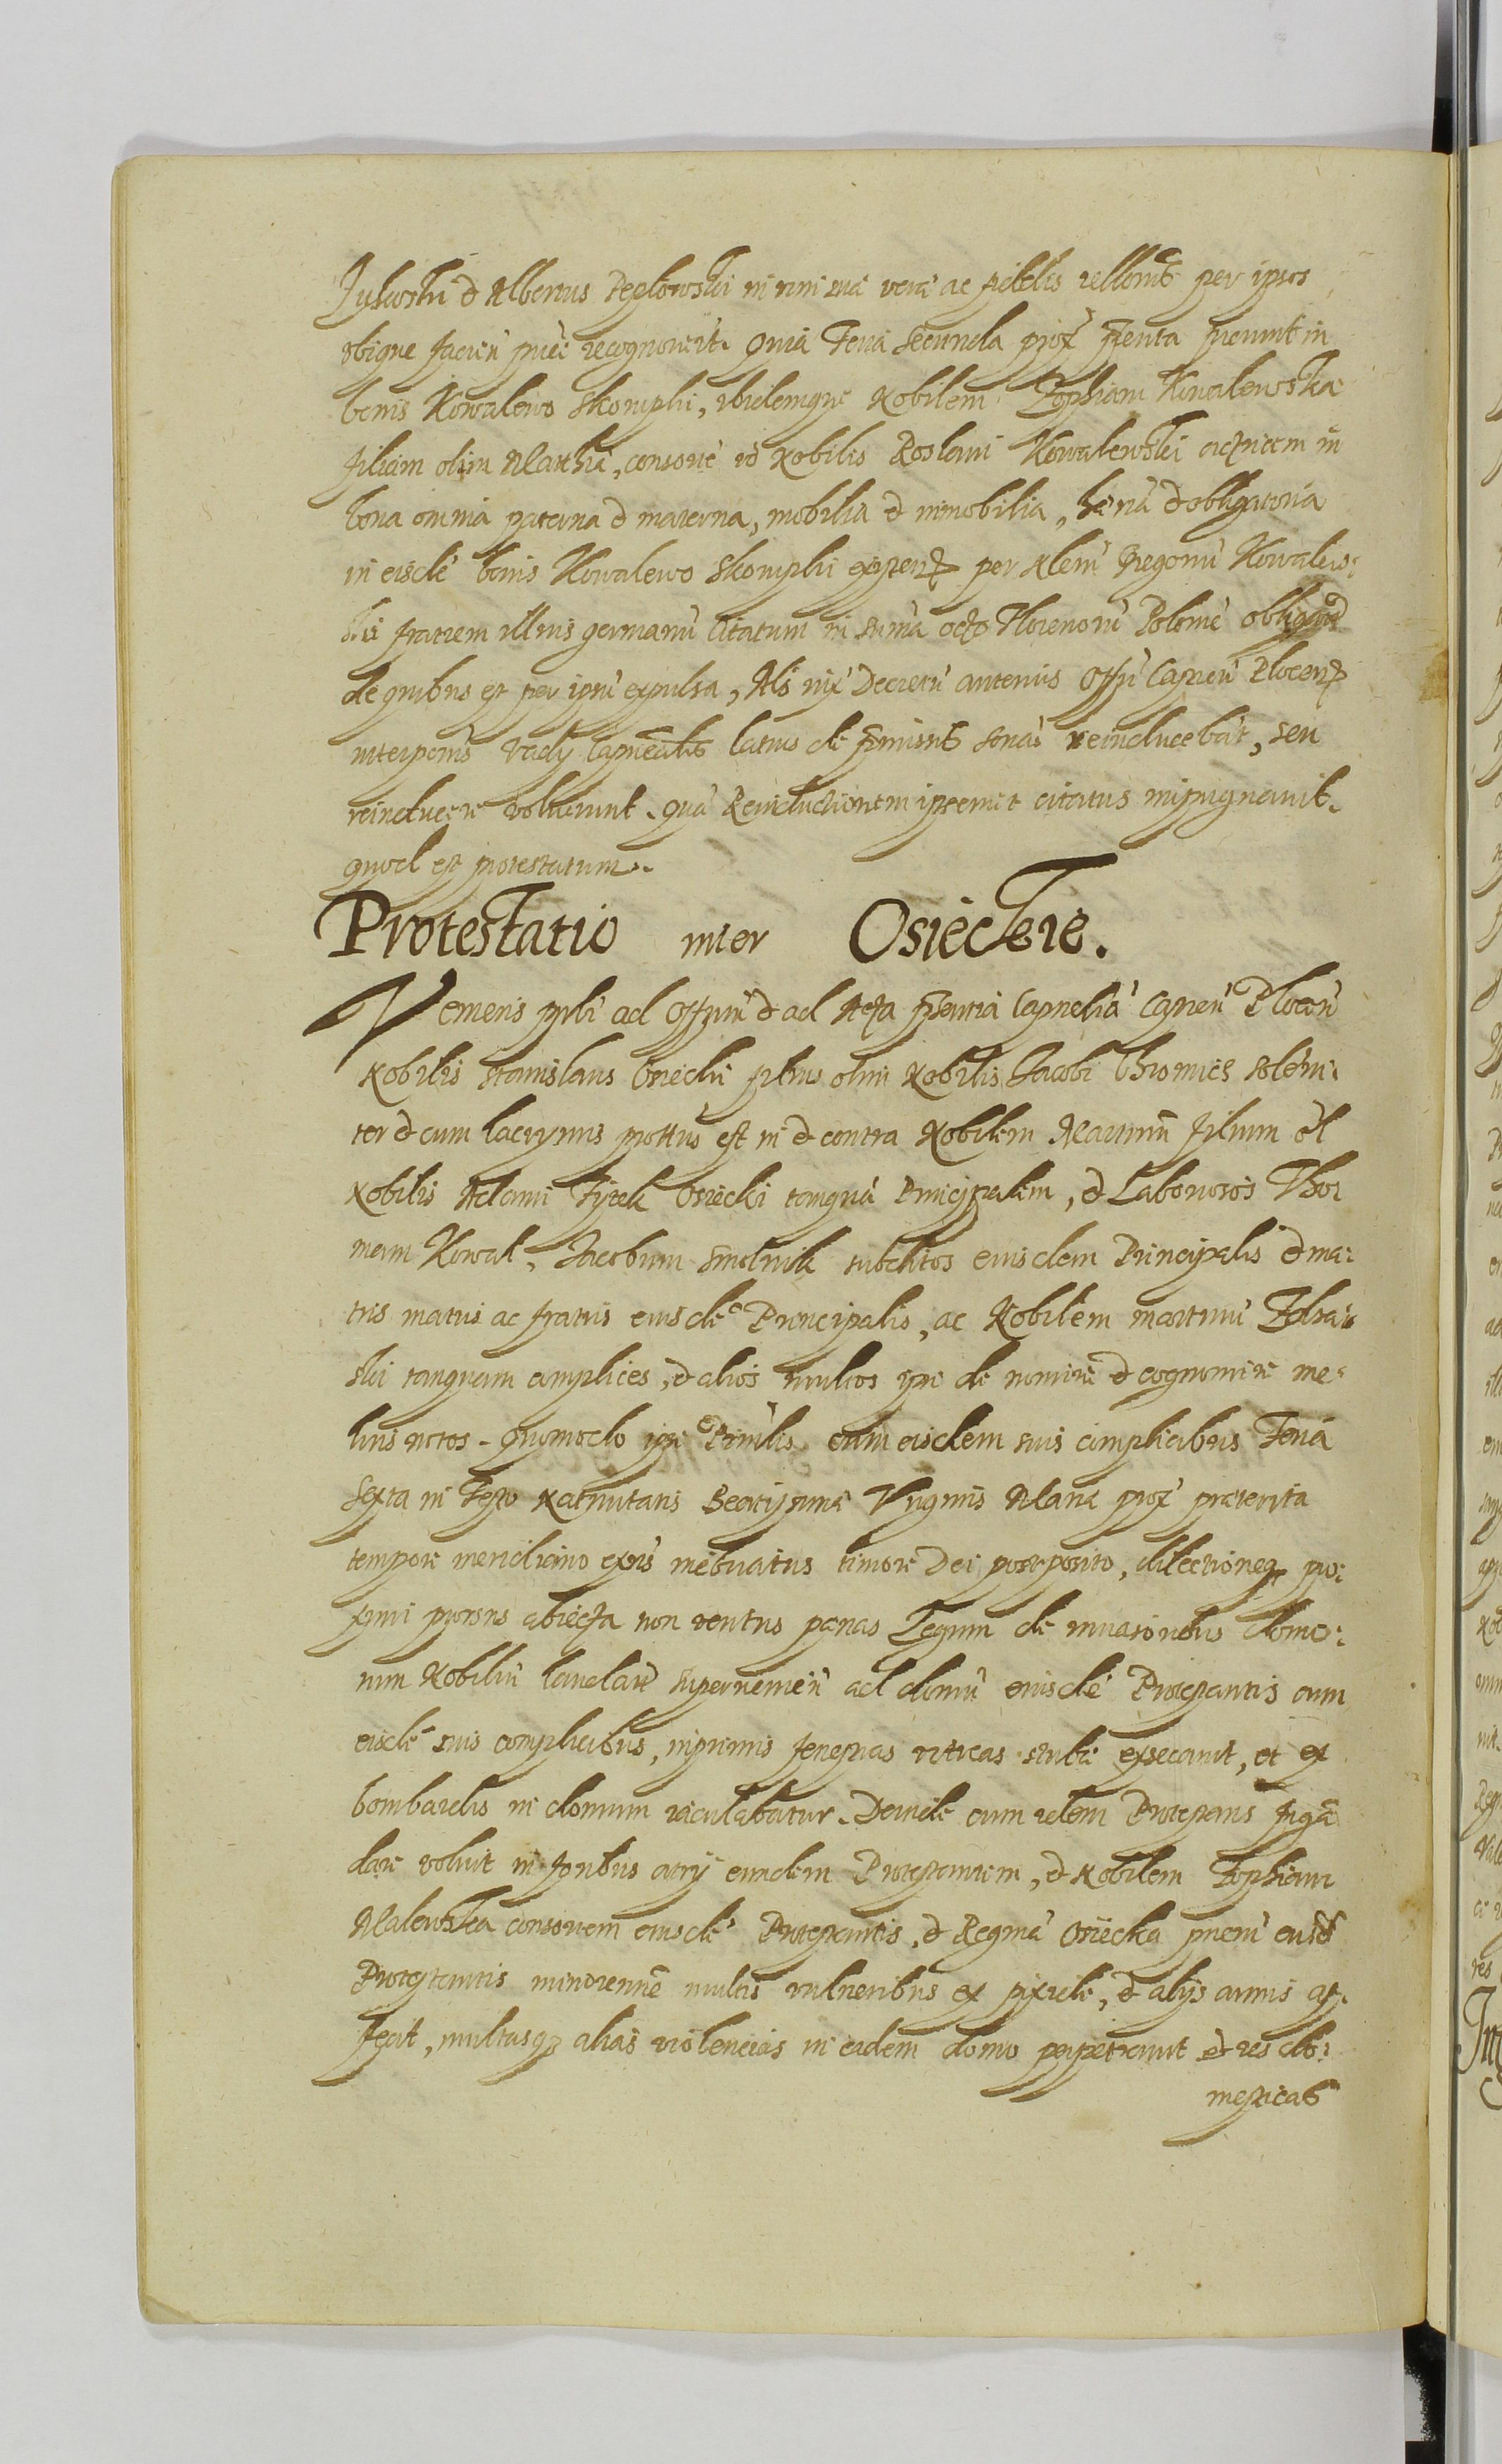 et Albertus Peplowski in vim suá verá ac fidelis rellonis per ipsos
ibique facien publice recognoverút. Quia Feria Secunda prox fuerunt in
bonis Kowalewo Skorupki, ibidemque Nobilem Zophiam Kowalewska
filiam olim Mathiæ, consorté vo Nobilis Roslani Kowalewski actricem in
bona omnia paterna et materna, mobilia et immobilia, hæria et obligatoria
in eisdé bonis Kowalewo Skorupki existen per Nlem Gregoriú Kowalew:
ski fratrem illius germanú Citatum in suma octo Florenorú Poloniè obligat
de quibus est per ipsú expulsa, Als iux Decretú anterius Offii Capnei Plocen
interponis vadij Capnealis latius de præmissis sonás reinducebát, seu
reinducere voluerunt. Quá Reinductionem ipsemet citatus impugnavit.
quod est protestatum.
Protestatio inter Osieckie.
Veniens psoli ad Offium et ad Acta psentia Capnelia Capnen Plocen
Nobilis Stanislaus Osiecki filius olim Nobilis Jacobi Chromies solemi:
ter et cum lacrymis prottus est in et contra Nobilem Martinú filium ol
Nobilis Adami Fijrek Osiecki tanquá Principalem, et Laboriosos Tho:
mam Kowal, Jacobum Smolnik subditos eiusdem Principalis et ma:
tris matris ac fratris eiusdé Principalis, ac Nobilem martinú
ski tanquam complices, et alios multos ipsi de nomine et cognomine me:
lius notos. Quomodo ipse Prinlis cum eisdem suis complicibus Feria
Sexta in Festo Nativitatis Beatissimæ Virginis Mariæ prox præterita
tempore meridiano exns inebriatus timore Dei postposito, dilectioneq pro:
ximi prorsus abiecta non veritus pænas Legum de invasionibus domo:
rum Nobiliú superveniens ad domú eiusdé Protestantis cum
eisdé suis complicibus, inprimis fenestras vitreas stubæ exsecavit, et ex
bombardis in domum iaculabatur. Deinde cum idem Protestans fugá
dare voluit in foribus atrij eundem Protestantem, et Nobilem Zophiam
Malewska consortem eiusdé Protestantis, et Reginá Osiecka puerú eiusd
Protestantis minorenné multis vulneribus ex pixide, et alijs armis af:
fecit, multasq alias violencias in eadem domo perpetravit et res do:
mesticas